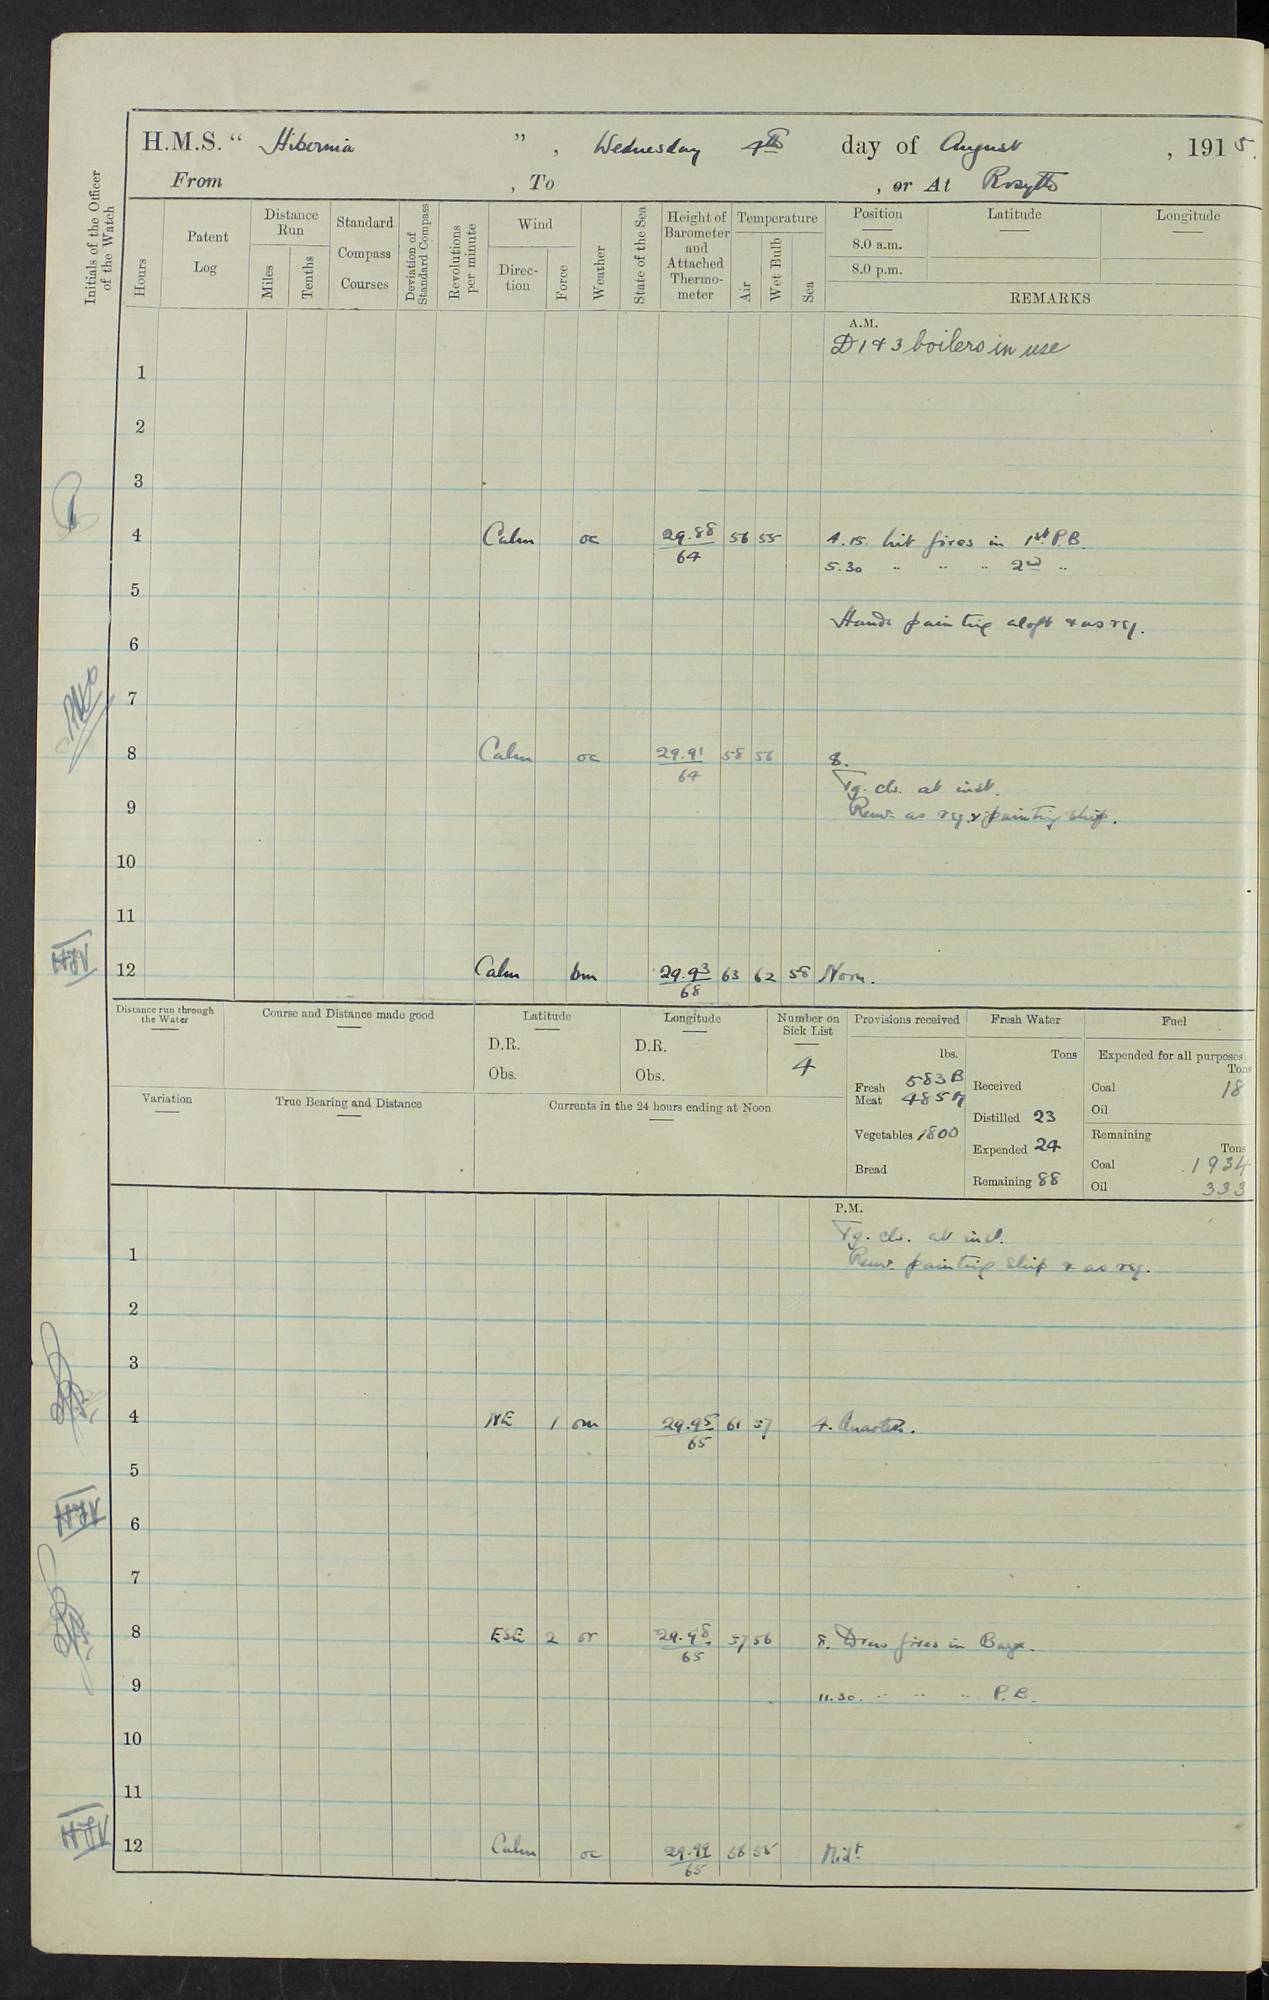 H.M.S. “ Hibernia ” , Wednesday 4th day of August , 1915.
From , To , or At Rosyth
Initials of the Officer of the Watch
Hours
Patent Log
Distance Run
Miles
Tenths
Standard Compass Courses
Deviation of Standard Compass
Revolutions per minute
Wind
Direc-tion
Force
Weather
State of the Sea
Height of Barometer and Attached Thermo-meter
Temperature
Air
Wet Bulb
Sea
Position
8.0 a.m.
8.0 p.m.
Latitude
Longitude
REMARKS
A.M.
D 1 & 3 boilers in use
1
2
3
4 Calm oc 29.88 56 55 4.15. lit fires in 1st P.B.
64
5.30 " " " 2nd "
5
Hands painting aloft & as req.
6
7
8 Calm oc 29.91 58 56 8.
64
Tg. cls. at inst.
9
Remr. as req. & painting ship.
10
11
HJV
12 Calm bm 29.93 63 62 58 Noon.
68
Distance run through the Water
Course and Distance made good
Latitude
D.R.
Obs.
Longitude
D.R.
Obs.
Number on Sick List
4
Provisions received
lbs.
Fresh Meat 583 B
485
Vegetables 1800
Bread
Fresh Water
Tons
Received
Distilled 23
Expended 24
Remaining 88
Fuel
Expended for all purposes
Tons
Coal 18
Oil
Remaining
Tons
Coal 1934
Oil 333
Variation
True Bearing and Distance
Currents in the 24 hours ending at Noon
P.M.
Tg. cls. at inst.
1
Remr. painting ship & as req.
2
3
4 NE 1 om 29.95 61 57 4. Quarters.
65
5
HJV
6
7
8 ESE 2 or 29.98 57 56 8. Drew fires in Barge.
65
9
11.30. " " " P.B.
10
11
HJV
12 Calm oc 29.99 56 55 Midt
65